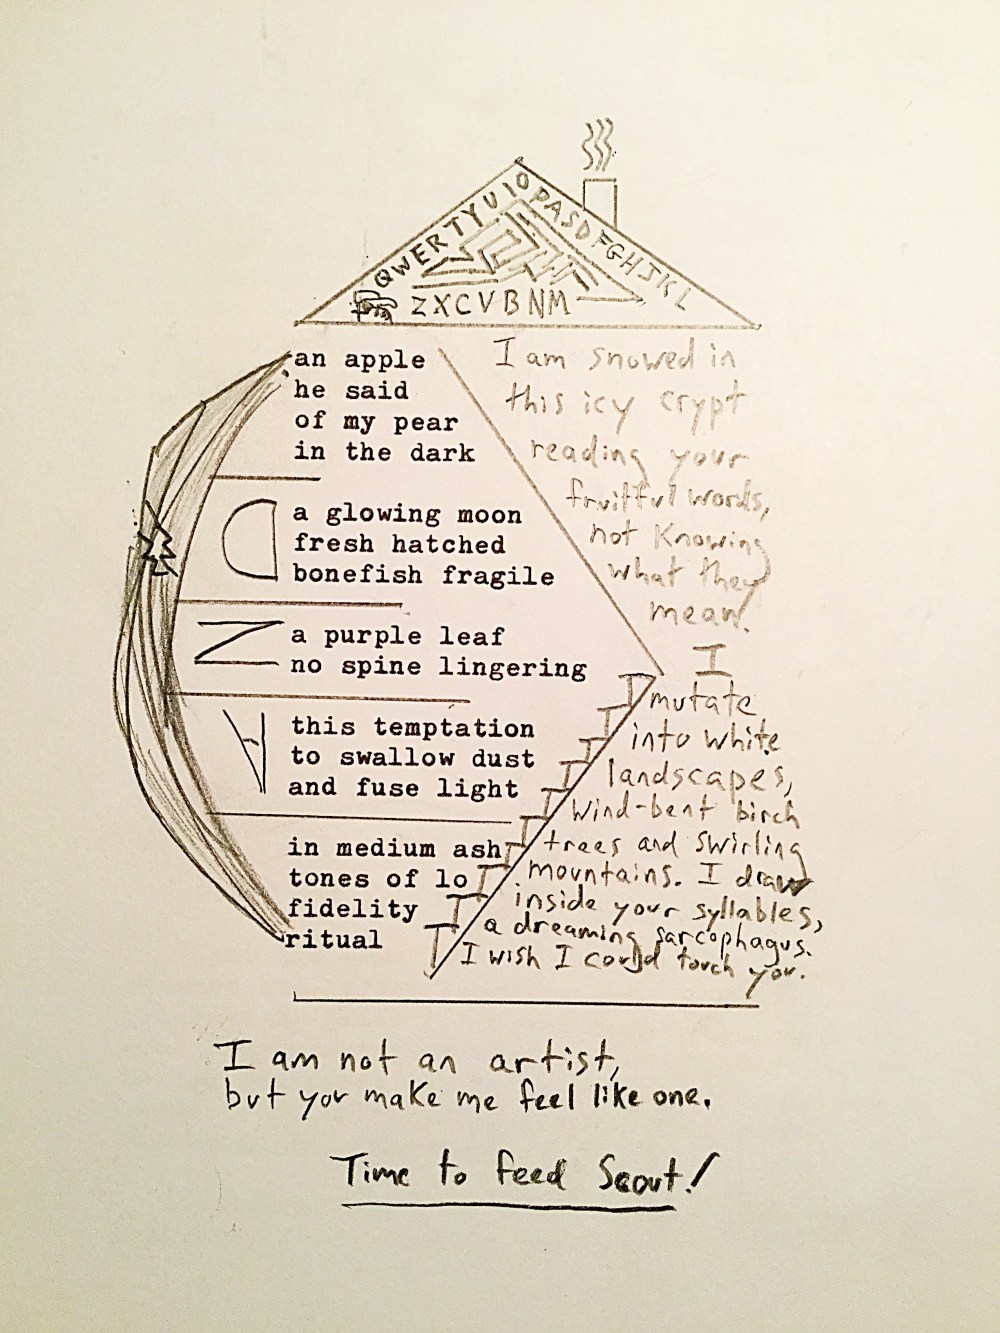 QWERTYUIOPASDFGHJKL
ZXCVBNM
an apple
he said
of my pear
in the dark
a glowing moon
fresh hatched
bonefish fragile
a purple leaf
no spine lingering
this temptation
to swallow dust
and fuse light
in medium ash
tones of lo
fidelity
ritual
I am snowed in
this icy crypt
reading your
fruitful words,
not knowing
what they
mean.
I
mutate
into white
landscapes,
wind-bent birch
trees and swirling
mountains. I draw
inside your syllables,
a dreaming sarcophagus.
I wish I could touch you.
I am not an artist,
but you make me feel like one.
Time to feed Scout!